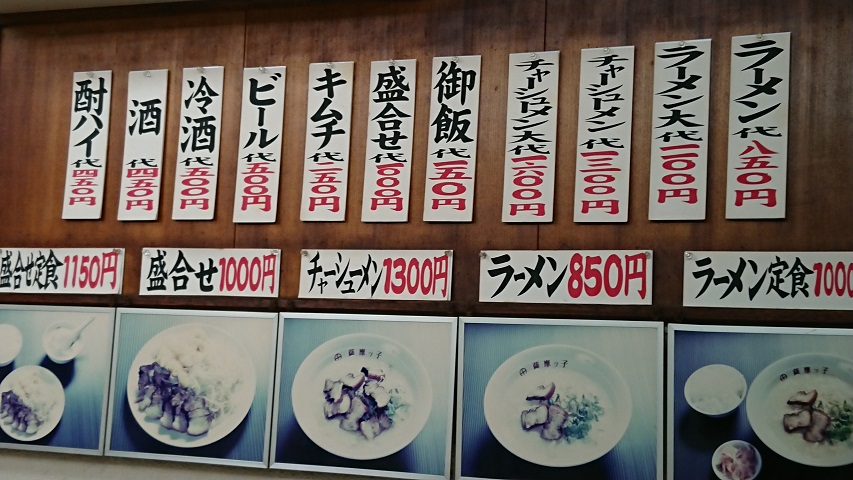 ラーメン代八五〇円
ラーメン大代一一〇〇円
チャーシューメン代一三〇〇円
チャーシューメン大代一六〇〇円
御飯代一五〇円
盛合せ代一〇〇〇円
キムチ代一五〇円
ビール代五〇〇円
冷酒代五〇〇円
酒代四五〇円
酎ハイ代四五〇円
盛合せ定食1150円
盛合せ1000円
チャーシューメン1300円
ラーメン850円
ラーメン定食1000
薩摩っ子
薩摩っ子
薩摩っ子